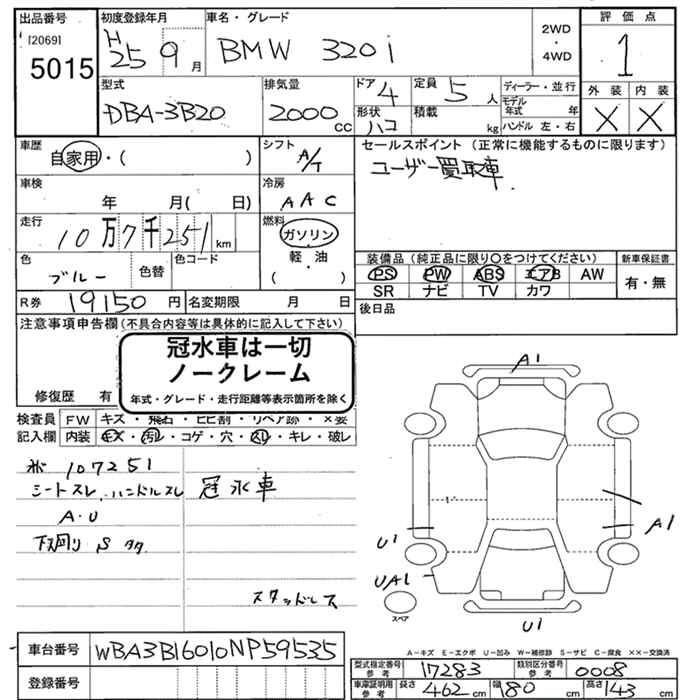 出品番号 初度登録年月 車名・グレード 2WD・4WD 評価点
[2069] 5015 H25 9月 BMW 320i 1
型式 排気量 ドア 4 定員 5人 ディーラー・並行 外装 内装
DBA-3B20 2000cc 形状 ハコ 積載 kg モデル年式 年 X X
ハンドル 左・右
車歴 自家用・( ) シフト A/T セールスポイント (正常に機能するものに限ります)
ユーザー買取車
車検 年 月( 日) 冷房 AAC
走行 10万7千251km 燃料 ガソリン 軽・油 ( ・ )
色 ブルー 色替 色コード
装備品 (純正品に限り〇をつけてください) 新車保証書
PS PW ABS エアB AW 有・無
SR ナビ TV カワ
R券 19150円 名変期限 月 日 後日品
注意事項申告欄(不具合内容等は具体的に記入して下さい)
冠水車は一切
ノークレーム
年式・グレード・走行距離等表示箇所を除く
修復歴 有
検査員 FW キズ・飛石・ヒビ割・リペア跡・×要
記入欄 内装 キズ・汚レ・コゲ・穴・スレ・キレ・破レ
107251
シートスレ,ハンドルスレ 冠水車
A・U
下廻り S
スタッドレス
A1
A1
U1
UA1
U1
スペア
A-キズ E-エクボ U-凹み W-補修跡 S-サビ C-腐食 ××-交換済
車台番号 WBA3B16010NP59535
型式指定番号 参考 17283 類別区分番号 参考 0008
登録番号
車庫証明用 参考 長さ 462cm 幅 180cm 高さ 143cm